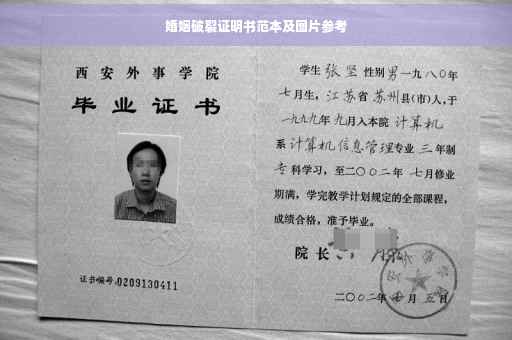 婚姻破裂证明书范本及图片参考
西安外事学院
毕业证书
证书编号:0209130411
学生张坚性别男一九八〇年
七月生,江苏省苏州县(市)人,于
一九九九年九月入本院计算机
系计算机信息管理专业三年制
专科学习,至二〇〇二年七月修业
期满,学完教学计划规定的全部课程,
成绩合格,准予毕业。
院长
二〇〇二年 月五日